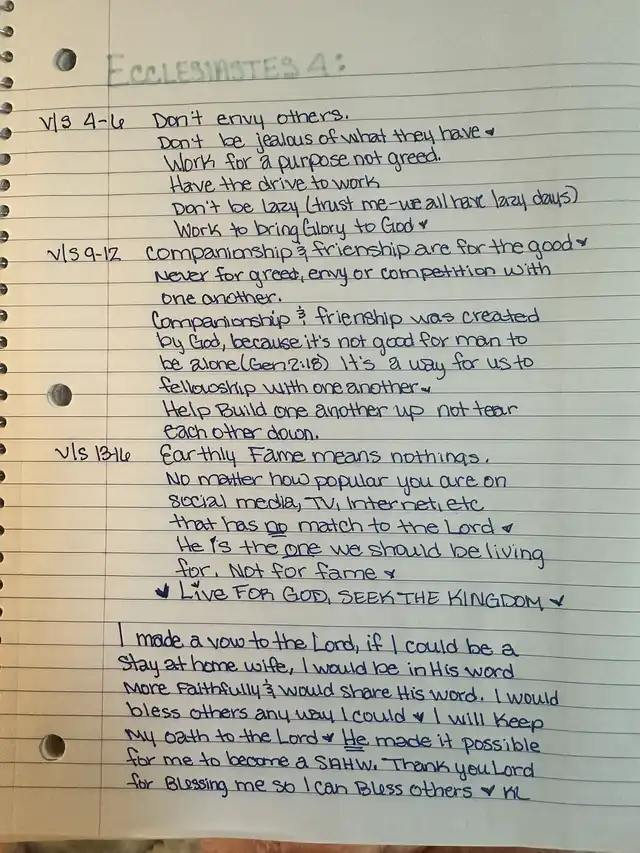 ECCLESIASTES 4:
V/S 4-6 Don't envy others.
Don't be jealous of what they have ♥
Work for a purpose not greed.
Have the drive to work
Don't be lazy (trust me-we all have lazy days)
Work to bring Glory to God ♥
V/S 9-12 Companionship & frienship are for the good ♥
Never for greed, envy or competition with
one another.
Companionship & frienship was created
by God, because it's not good for man to
be alone (Gen 2:18) It's a way for us to
fellowship with one another ♥
Help Build one another up not tear
each other down.
V/S 13-16 Earthly Fame means nothings.
No matter how popular you are on
social media, TV, Internet, etc
that has no match to the Lord ♥
He is the one we should be living
for. Not for fame ♥
♥ Live FOR GOD, SEEK THE KINGDOM ♥
I made a vow to the Lord, if I could be a
stay at home wife, I would be in His word
more faithfully & would share His word. I would
bless others any way I could ♥ I will keep
my oath to the Lord ♥ He made it possible
for me to become a SAHW. Thank you Lord
for Blessing me so I can Bless others ♥ KL